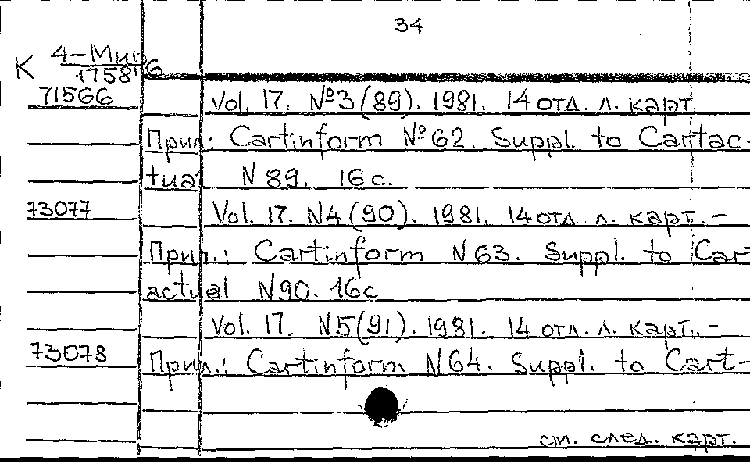 34
К 4-Миг
175816
71566 Vol. 17. №3 (89). 1981. 14 отд. л. карт
Прил.: Cartinform №62. Suppl. to Cartac-
tual N 89. 16 с.
73077 Vol. 17. N4 (90). 1981. 14 отд. л. карт. –
Прил.: Cartinform N63. Suppl. to Car
actual N90. 16с
Vol. 17. N5 (91). 1981. 14 отд. л. карт. –
73078 Прил.: Cartinform N64. Suppl. to Cart-
см. след. карт.